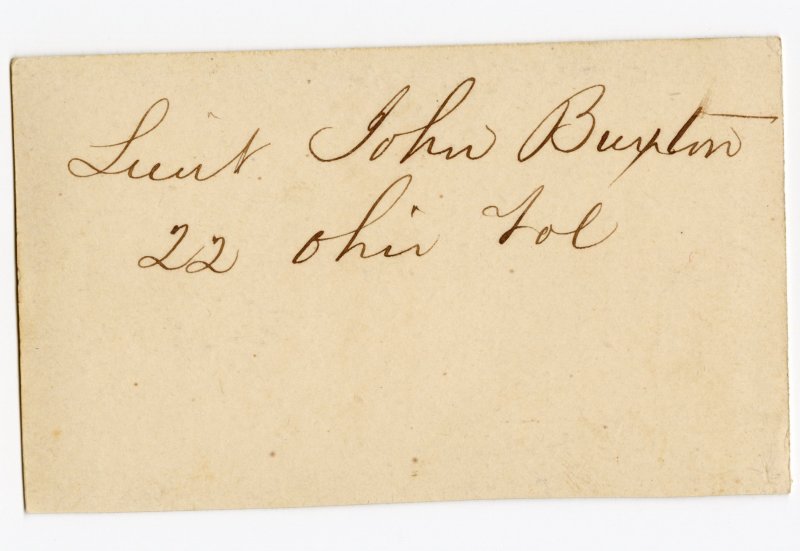 Lieut John Buxton
22 Ohio Vol